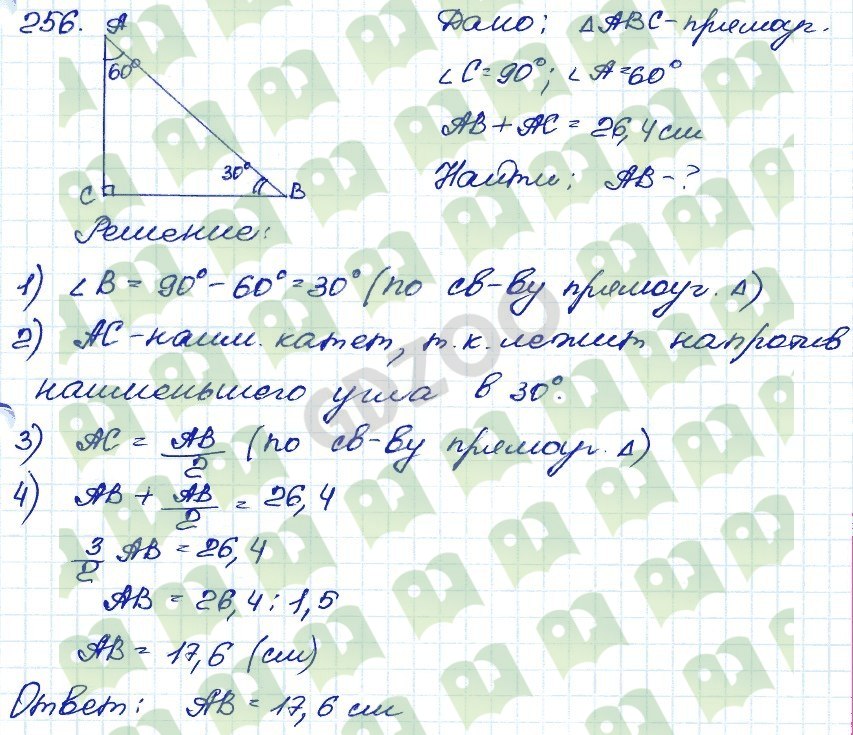 256.
A
60°
30°
C
B
Дано: △ABC-прямоуг.
∠C=90°; ∠A=60°
AB+AC = 26,4 см
Найти: AB-?
Решение:
1) ∠B = 90°-60°=30° (по св-ву прямоуг. △)
2) AC-наим. катет, т.к. лежит напротив
наименьшего угла в 30°.
3) AC = AB/2 (по св-ву прямоуг. △)
4) AB + AB/2 = 26,4
3/2 AB = 26,4
AB = 26,4 : 1,5
AB = 17,6 (см)
Ответ: AB = 17,6 см
GDZOO